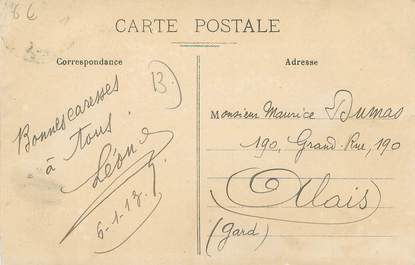 86
CARTE POSTALE
Correspondance
Adresse
B.
Bonnes caresses
à tous
Léon
6-1-13
Monsieur Maurice Dumas
190, Grand-Rue, 190
Alais
(Gard)